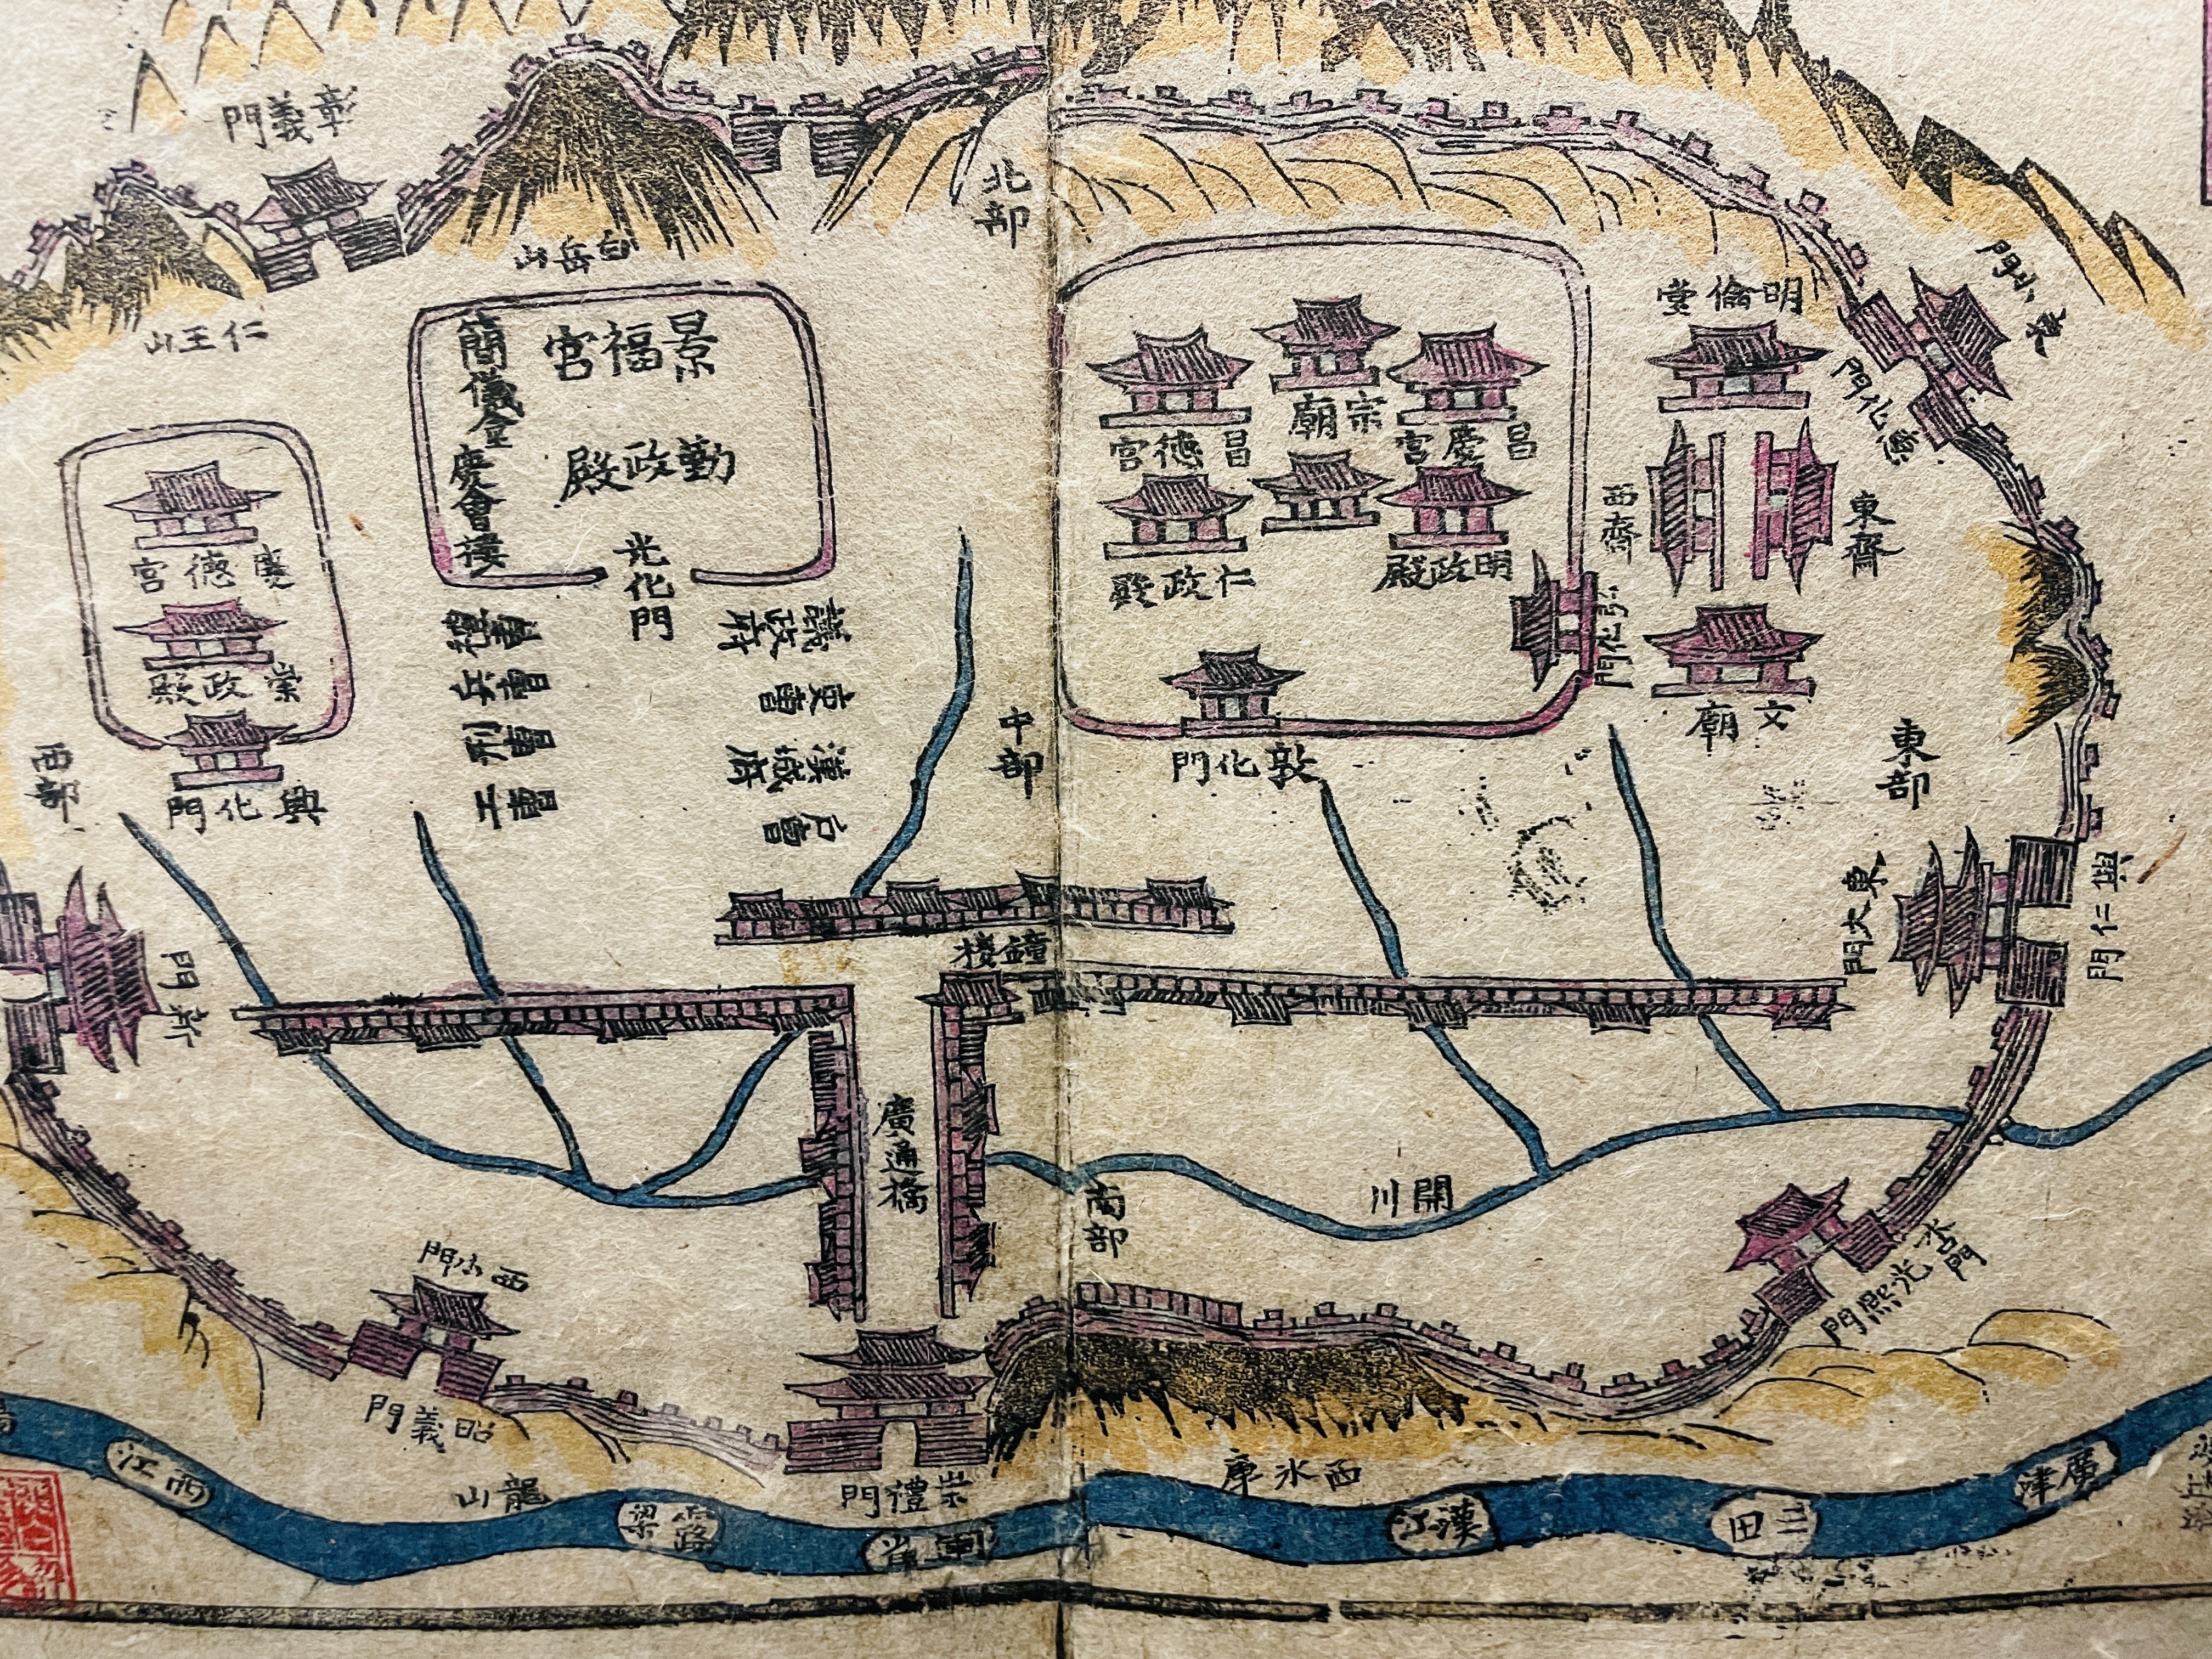 彰義門
白岳山
仁王山
北部
景福宮
勤政殿
簡儀
慶會樓
光化門
德宮
崇政殿
興化門
西部
禮曹
兵曹
刑曹
工曹
議政府
吏曹
漢城府
户曹
中部
宗廟
昌德宮
昌慶宮
仁政殿
明政殿
敦化門
弘化門
明倫堂
西齋
東齋
文廟
惠化門
東部
東大門
興仁門
新門
鐘樓
廣通橋
南部
開川
西小門
昭義門
崇禮門
光熙門
水口門
龍山
西氷庫
西江
露梁
漢江
三田
廣津